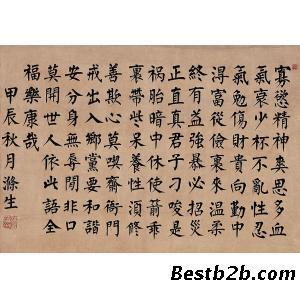 寡慾精神爽思多血
氣衰少杯不亂性忍
氣免傷財貴向勤中
得富從儉裏來溫柔
終有益強暴必招災
正直真君子刁唆是
禍胎暗中休使箭乖
裏帶些呆養性須修
善欺心莫喫齋衙門
戒出入鄉黨要和諧
安分身無辱閒非口
莫開世人依此語全
福樂康哉
甲辰秋月滌生
Bestb2b.com